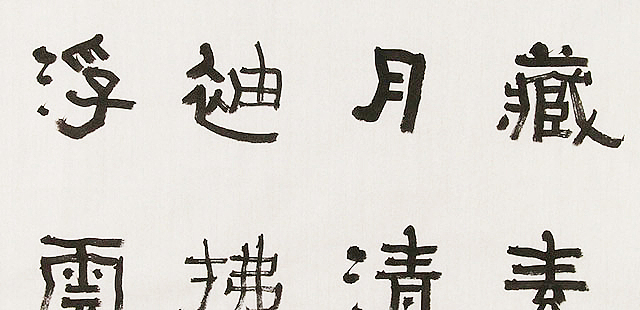 藏素
月清
迪拂
浮雲